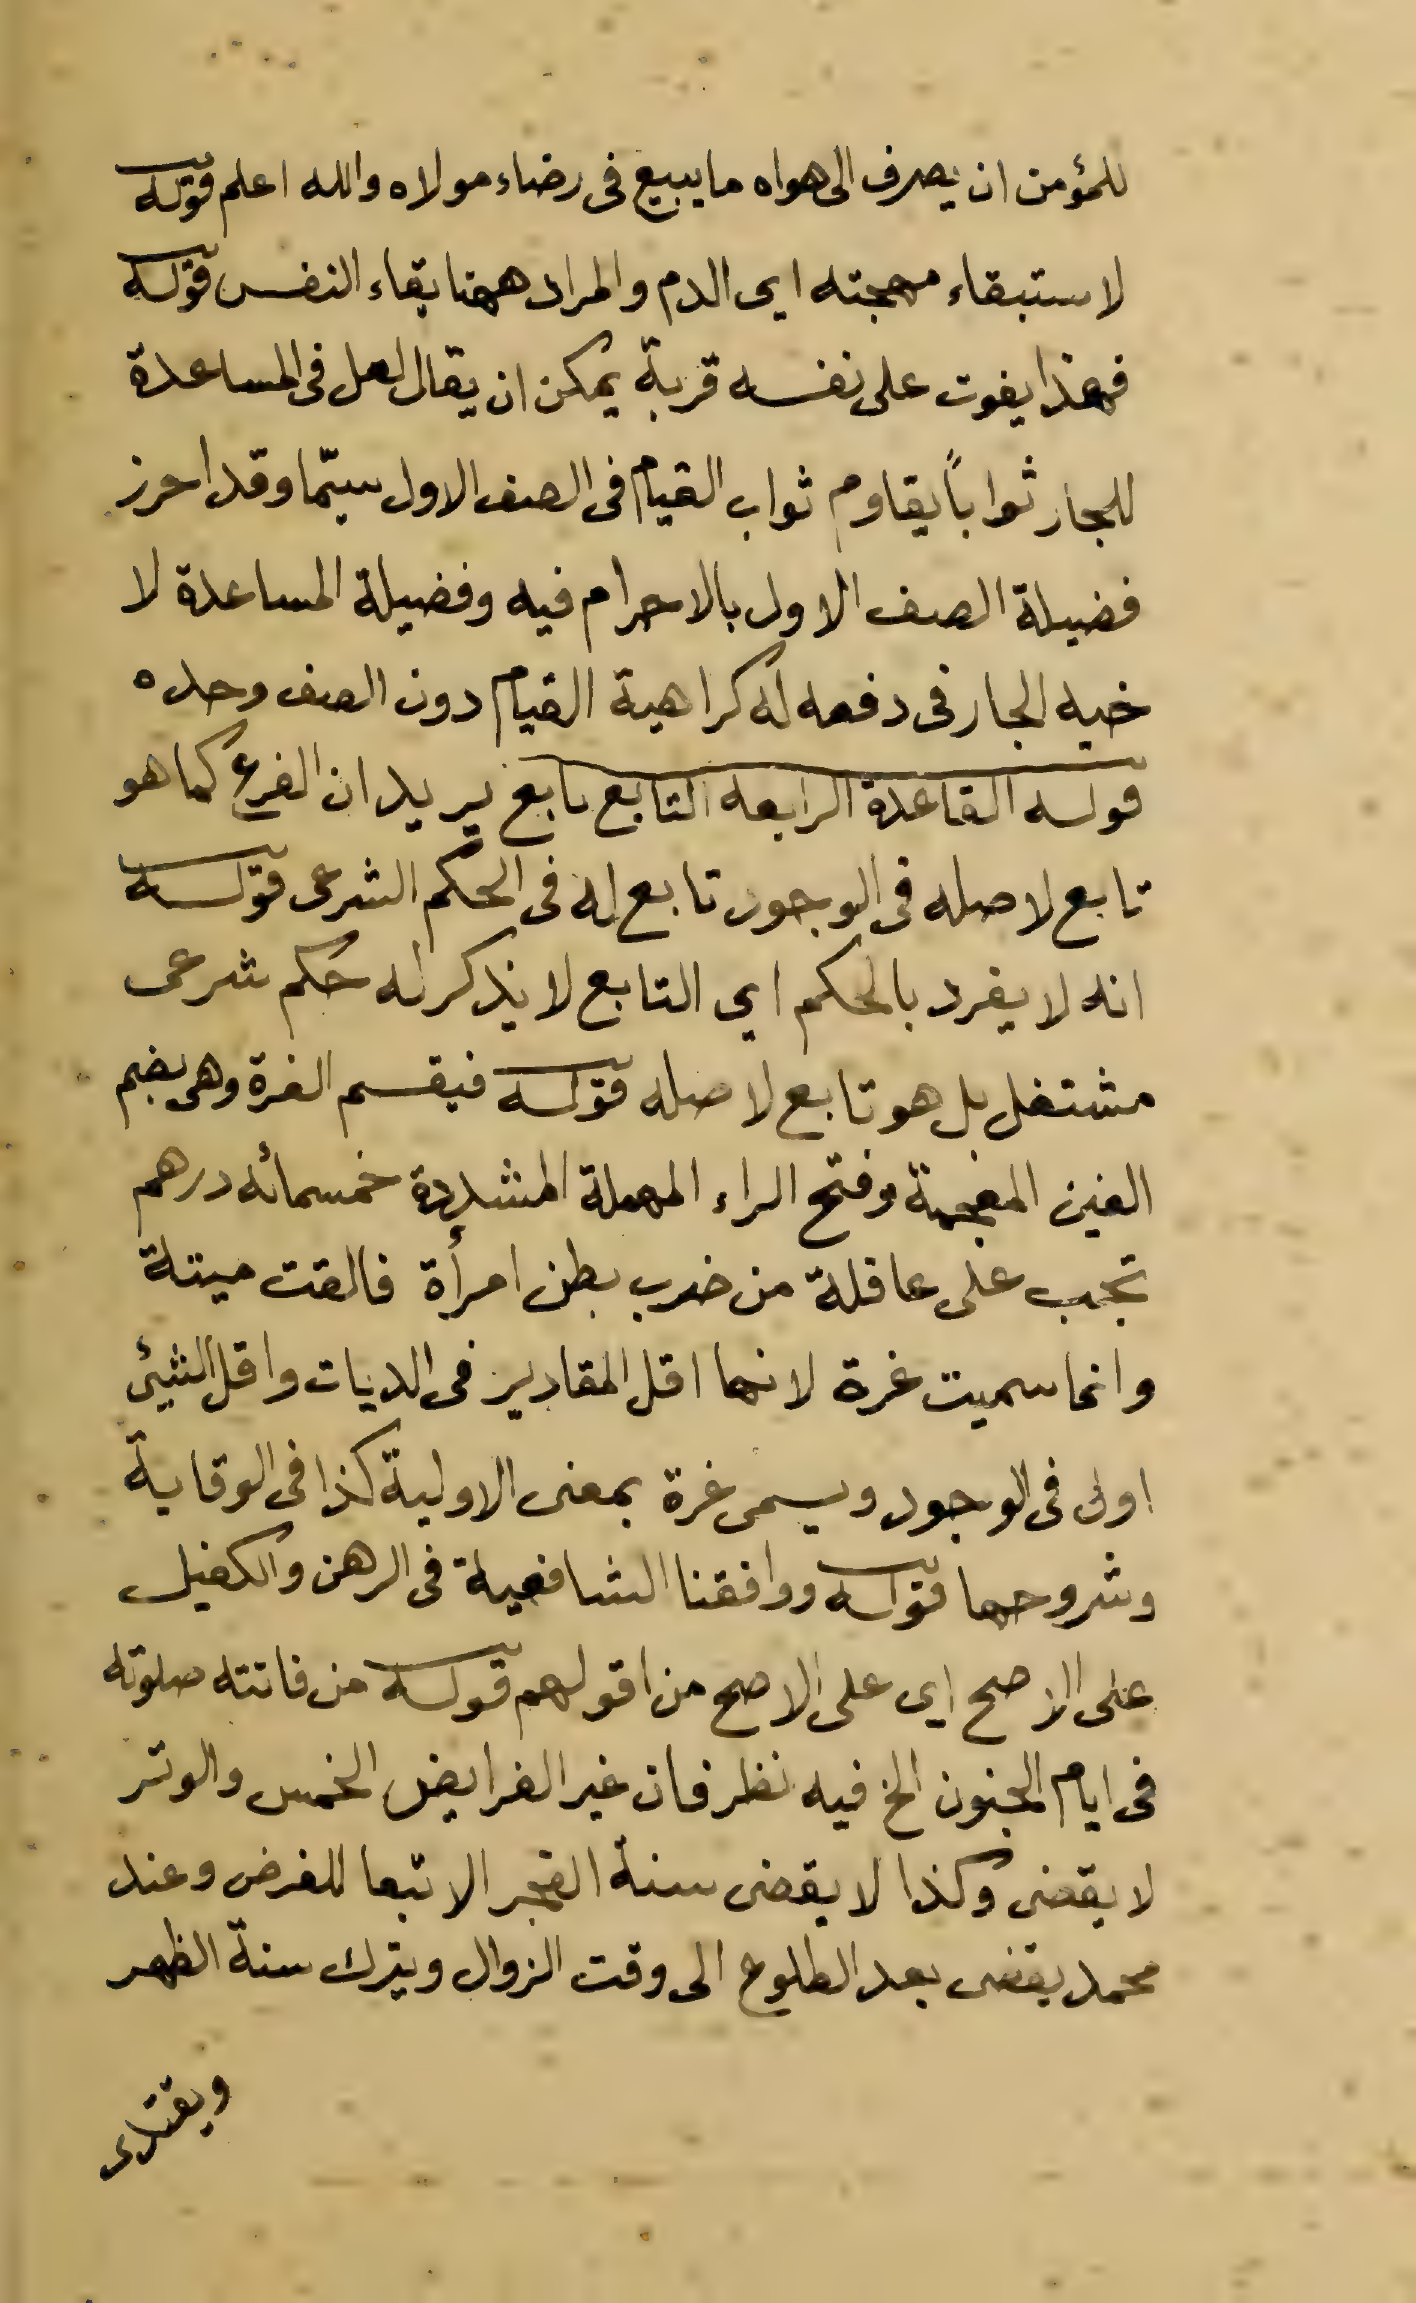 للمؤمن ان يصرف الى هواه ما يبيع فى رضاء مولاه والله اعلم قوله
لاستبقاء مهجته اى الدم والمراد ههنا بقاء النفس قوله
فهذا يفوت على نفسه قربة يمكن ان يقال لعل فى المساعدة
للجار ثواباً يقاوم ثواب القيام فى الصف الاول سيّما وقد احرز
فضيلة الصف الاول بالاحرام فيه وفضيلة المساعدة لا
خيه الجار فى دفعه له كراهية القيام دون الصف وحده
قوله القاعدة الرابعه التابع تابع يريد ان الفرع كما هو
تابع لاصله فى الوجود تابع له فى الحكم الشرعى قوله
انه لا يفرد بالحكم اى التابع لا يذكر له حكم شرعى
مشتغل بل هو تابع لاصله قوله فيقسم الغرة وهى بضم
الغين المعجمة وفتح الراء المهملة المشددة خمسمائه درهم
تجب على عاقلة من ضرب بطن امرأة فالقت ميتلة
وانما سميت غرة لانها اقل المقادير فى الديات واقل الشيئ
اولى فى الوجود ويسمى غرة بمعنى الاولية كذا فى الوقاية
وشروحها قوله ووافقنا الشافعية فى الرهن والكفيل
على الاصح اى على الاصح من اقولهم قوله من فاتته صلوته
فى ايام الجنون الخ فيه نظر فان غير الفرايض الخمس والوتر
لا يقضى وكذا لا يقضى سنة الفجر الا تبعا للفرض وعند
محمد يقضى بعد الطلوع الى وقت الزوال ويترك سنة الظهر
ويقتدى